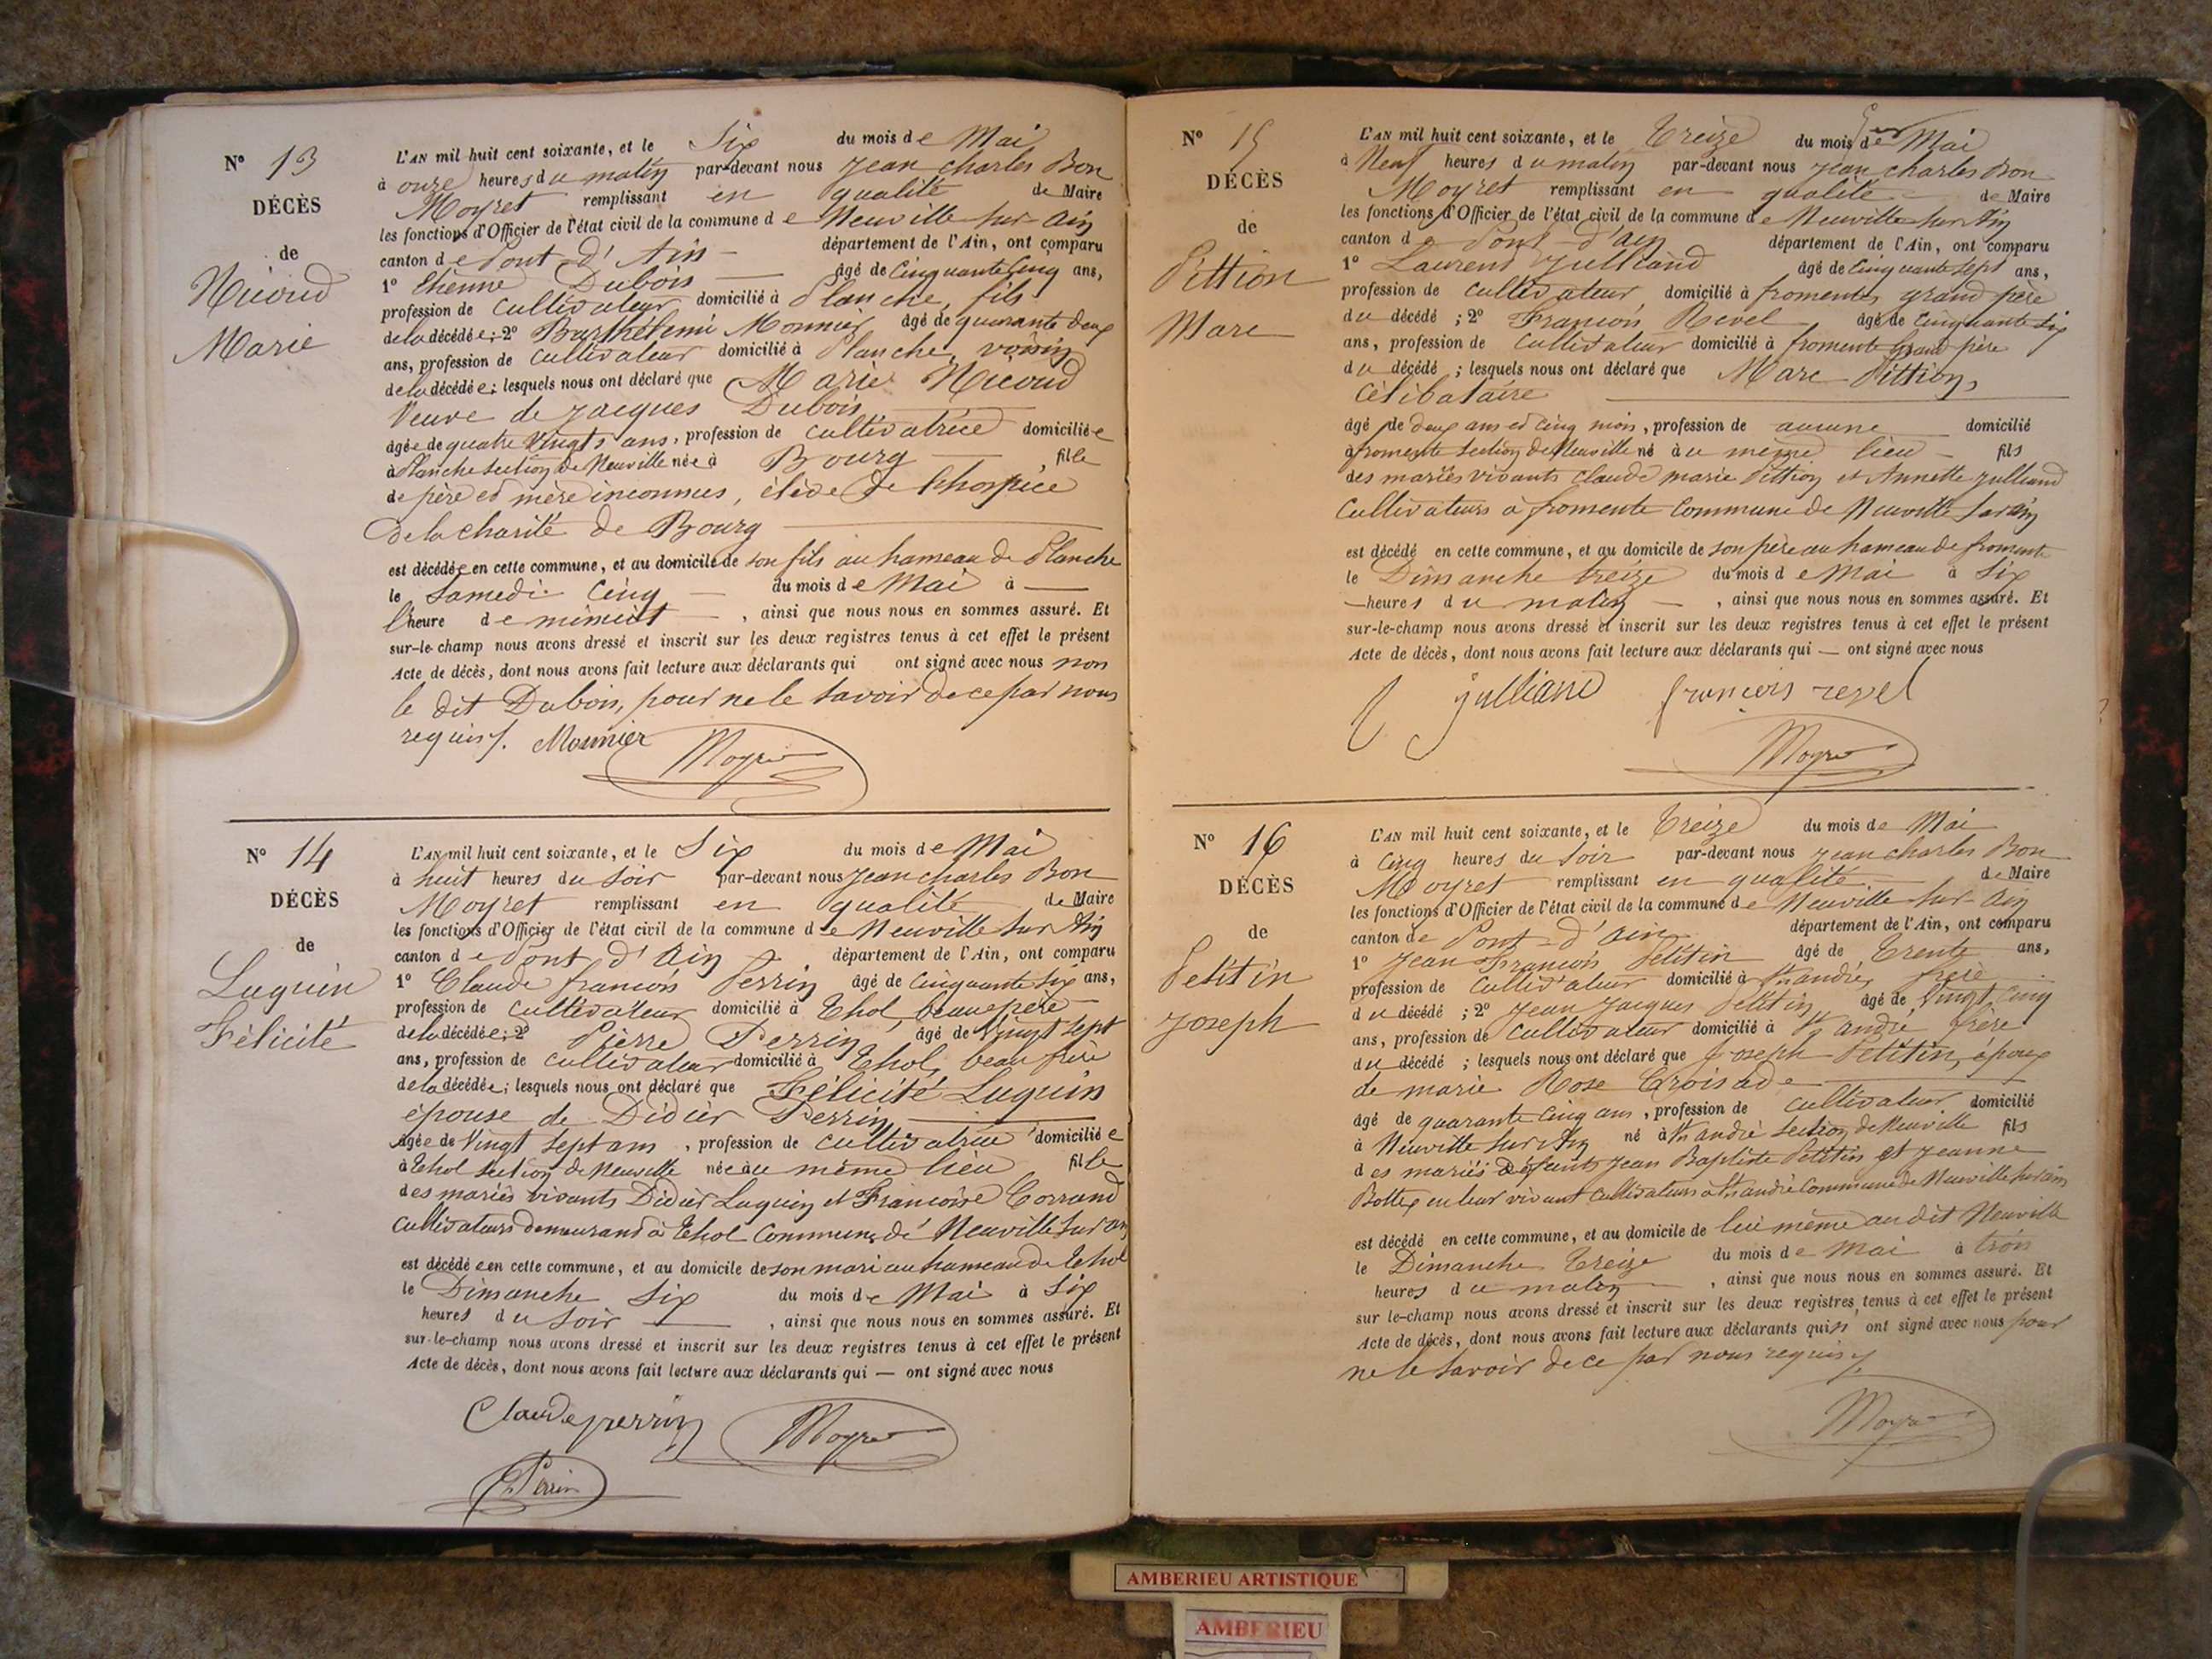 N° 13
DÉCÈS
de
Nicoud
Marie
L'AN mil huit cent soixante, et le Six du mois de Mai
à onze heures du matin par-devant nous Jean Charles Bon
Moyret remplissant en qualité de Maire
les fonctions d'Officier de l'état civil de la commune de Neuville sur Ain
canton de Pont d'Ain département de l'Ain, ont comparu
1° Etienne Dubois âgé de Cinquante Cinq ans,
profession de Cultivateur domicilié à Planche, fils
de la décédée; 2° Barthelemi Monnier âgé de quarante deux
ans, profession de Cultivateur domicilié à Planche, voisin
de la décédée; lesquels nous ont déclaré que Marie Nicoud
Veuve de Jacques Dubois
âgée de quatre Vingts ans, profession de Cultivatrice domiciliée
à Planche section de Neuville née à Bourg fille
de père et mère inconnus, élève de l'hospice
de la charité de Bourg
est décédée en cette commune, et au domicile de son fils au hameau de Planche
le Samedi Cinq du mois de Mai à
l'heure de minuit, ainsi que nous nous en sommes assuré. Et
sur-le-champ nous avons dressé et inscrit sur les deux registres tenus à cet effet le présent
Acte de décès, dont nous avons fait lecture aux déclarants qui ont signé avec nous non
le dit Dubois, pour ne le savoir de ce par nous
requis. Monnier Moyret
N° 14
DÉCÈS
de
Luquin
Félicité
L'AN mil huit cent soixante, et le Six du mois de Mai
à huit heures du Soir par-devant nous Jean Charles Bon
Moyret remplissant en qualité de Maire
les fonctions d'Officier de l'état civil de la commune de Neuville sur Ain
canton de Pont d'Ain département de l'Ain, ont comparu
1° Claude François Perrin âgé de Cinquante Six ans,
profession de Cultivateur domicilié à Thol, beau père
de la décédée; 2° Pierre Perrin âgé de Vingt Sept
ans, profession de Cultivateur domicilié à Thol, beau frère
de la décédée; lesquels nous ont déclaré que Félicité Luquin
épouse de Didier Perrin
âgée de Vingt Sept ans, profession de Cultivatrice domiciliée
à Thol section de Neuville née au même lieu fille
des mariés vivants Didier Luquin et Françoise Corrand
Cultivateurs demeurand à Thol Commune de Neuville sur ain
est décédée en cette commune, et au domicile de son mari au hameau de Thol
le Dimanche Six du mois de Mai à Six
heures du Soir, ainsi que nous nous en sommes assuré. Et
sur-le-champ nous avons dressé et inscrit sur les deux registres tenus à cet effet le présent
Acte de décès, dont nous avons fait lecture aux déclarants qui — ont signé avec nous
Claude perrin Moyret
Perrin
N° 15
DÉCÈS
de
Pittion
Marc
L'AN mil huit cent soixante, et le Treize du mois de Mai
à Neuf heures du matin par-devant nous Jean Charles Bon
Moyret remplissant en qualité de Maire
les fonctions d'Officier de l'état civil de la commune de Neuville sur Ain
canton de Pont d'ain département de l'Ain, ont comparu
1° Laurent Julliand âgé de Cinquante Sept ans,
profession de Cultivateur domicilié à fromente, grand père
du décédé; 2° François Revel âgé de Cinquante Six
ans, profession de Cultivateur domicilié à fromente Grand père
du décédé; lesquels nous ont déclaré que Marc Pittion,
Célibataire
âgé de deux ans et Cinq mois, profession de aucune domicilié
à fromente section de Neuville né au même lieu fils
des mariés vivants Claude marie Pittion et Annette Julliand
Cultivateurs à fromente Commune de Neuville sur ain
est décédé en cette commune, et au domicile de son père au hameau de fromente
le Dimanche treize du mois de Mai à Six
heures du matin, ainsi que nous nous en sommes assuré. Et
sur-le-champ nous avons dressé et inscrit sur les deux registres tenus à cet effet le présent
Acte de décès, dont nous avons fait lecture aux déclarants qui — ont signé avec nous
julliand françois revel
Moyret
N° 16
DÉCÈS
de
Petitin
Joseph
L'AN mil huit cent soixante, et le Treize du mois de Mai
à Cinq heures du Soir par-devant nous Jean Charles Bon
Moyret remplissant en qualité de Maire
les fonctions d'Officier de l'état civil de la commune de Neuville sur Ain
canton de Pont d'ain département de l'Ain, ont comparu
1° Jean François Petitin âgé de Trente ans,
profession de Cultivateur domicilié à St andré, frère
du décédé; 2° Jean Jacques Petitin âgé de Vingt Cinq
ans, profession de Cultivateur domicilié à St andré frère
du décédé; lesquels nous ont déclaré que Joseph Petitin, époux
de marie Rose Croisade
âgé de quarante Cinq ans, profession de Cultivateur domicilié
à Neuville sur Ain né à St andré section de Neuville fils
des mariés défunts Jean Baptiste Petitin et Jeanne
Bottex en leur vivant Cultivateurs à St andré Commune de Neuville sur ain
est décédé en cette commune, et au domicile de lui même au dit Neuville
le Dimanche Treize du mois de Mai à trois
heures du matin, ainsi que nous nous en sommes assuré. Et
sur le-champ nous avons dressé et inscrit sur les deux registres tenus à cet effet le présent
Acte de décès, dont nous avons fait lecture aux déclarants qui n'ont signé avec nous pour
ne le savoir de ce par nous requis
Moyret
AMBERIEU ARTISTIQUE
AMBERIEU